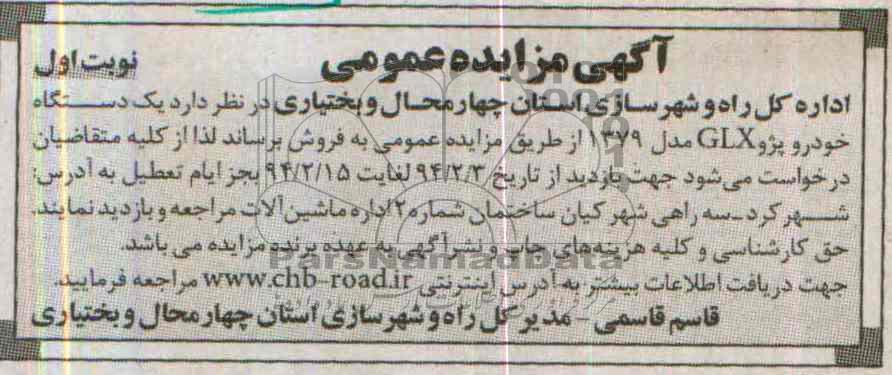 آگهی مزایده عمومی
نوبت اول
اداره کل راه و شهرسازی استان چهارمحال و بختیاری در نظر دارد یک دستگاه
خودرو پژو GLX مدل ۱۳۷۹ از طریق مزایده عمومی به فروش برساند لذا از کلیه متقاضیان
درخواست می‌شود جهت بازدید از تاریخ ۹۴/۲/۳ لغایت ۹۴/۲/۱۵ بجز ایام تعطیل به آدرس:
شهرکرد-سه راهی شهر کیان ساختمان شماره ۲ اداره ماشین آلات مراجعه و بازدید نمایند.
حق کارشناسی و کلیه هزینه‌های چاپ و نشر آگهی به عهده برنده مزایده می باشد.
جهت دریافت اطلاعات بیشتر به آدرس اینترنتی www.chb-road.ir مراجعه فرمایید.
قاسم قاسمی - مدیر کل راه و شهرسازی استان چهارمحال و بختیاری
ParsNamadData